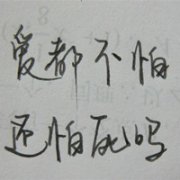 爱都不怕
还怕死吗